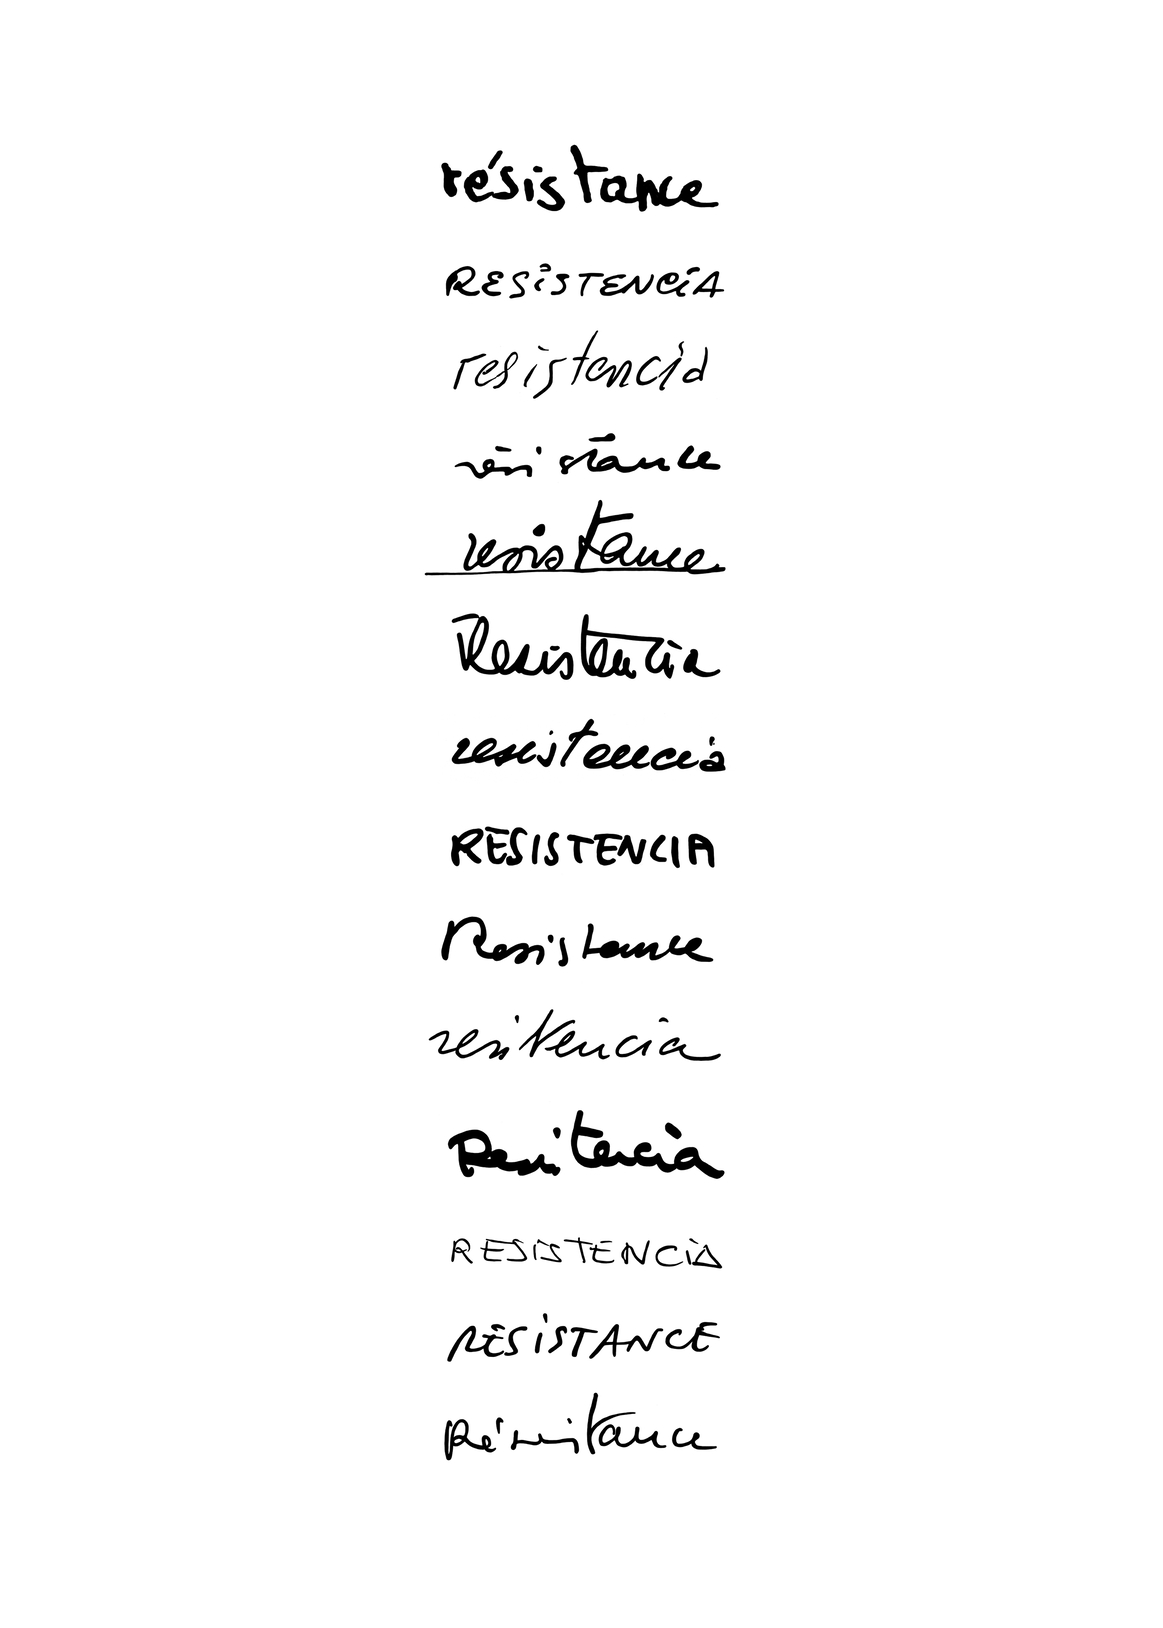 résistance
RESiSTENCiA
resistencia
résistance
resistance
Resistencia
resistencia
RESISTENCIA
Resistance
resitencia
Resitencia
RESiSTENCiA
RESiSTANCE
Résistance